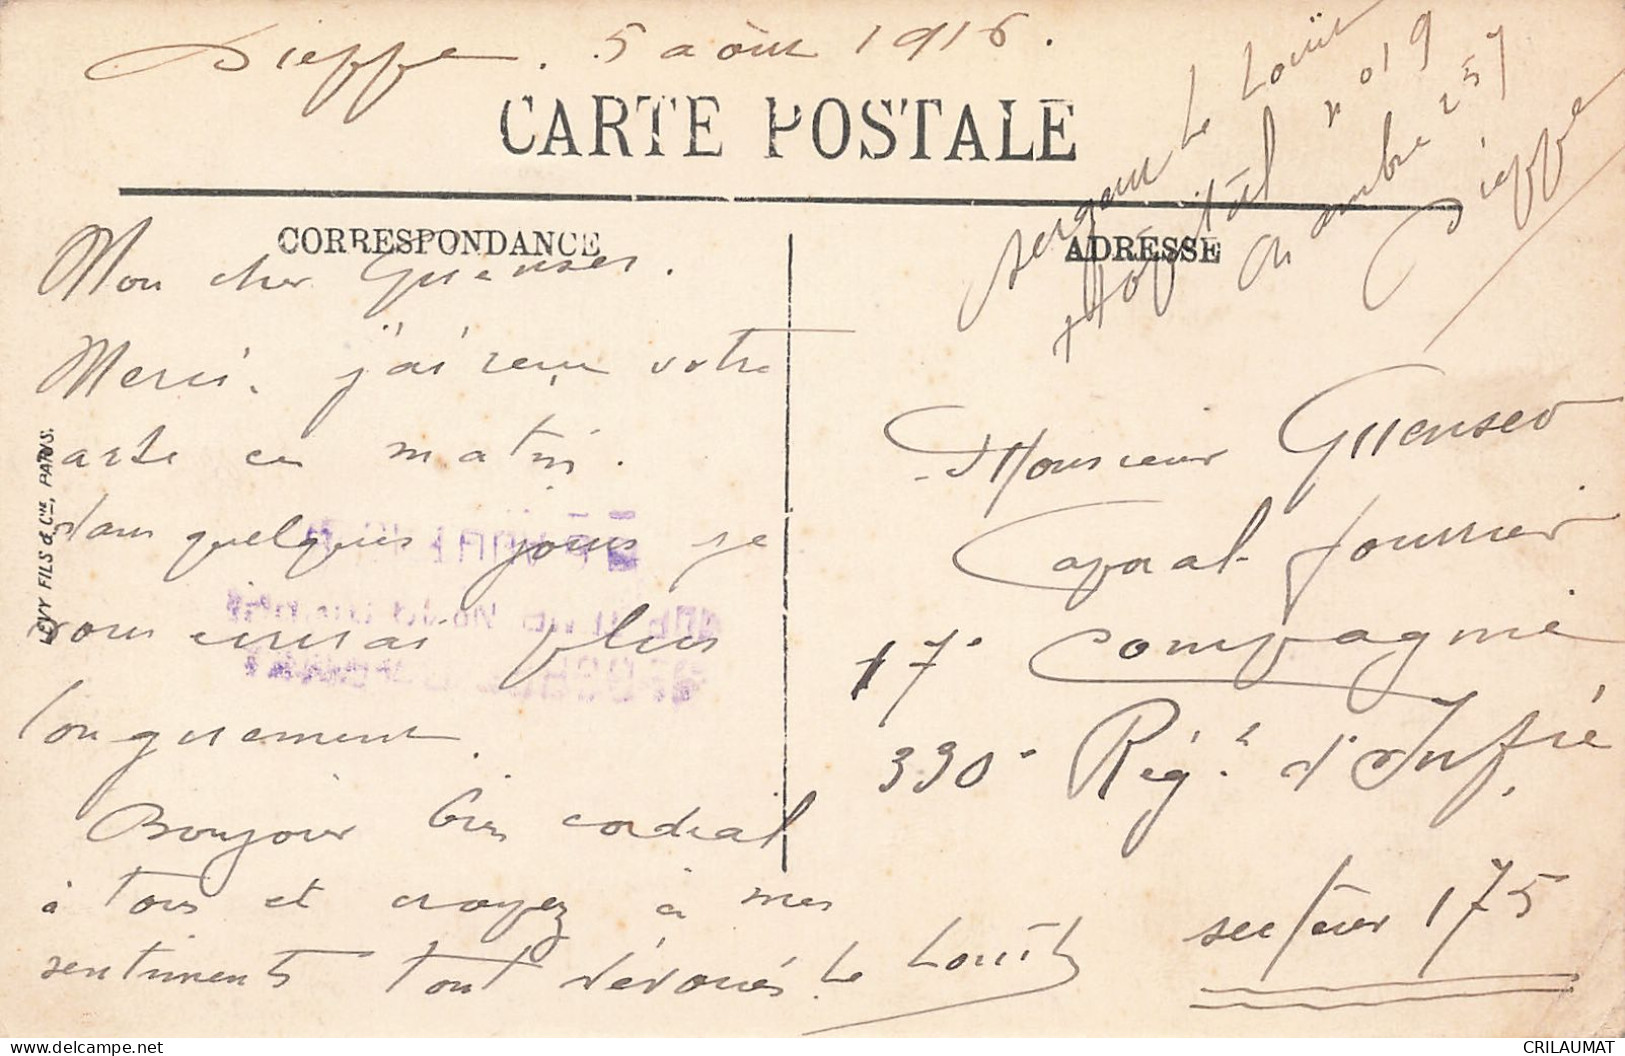 Dieppe. 5 août 1916.
CARTE POSTALE
CORRESPONDANCE
ADRESSE
Sergent Le Louët
Hôpital n° 19
Chambre 257
Dieppe
Mon cher Guenser.
Merci. j'ai reçu votre
carte ce matin.
dans quelques jours je
vous écrirai plus
longuement.
Bonjour bien cordial
à tous et croyez à mes
sentiments tout dévoués. Le Louët
Monsieur Guenser
Caporal fourrier
17e Compagnie
330e Rég.t d'Infrie
secteur 175
LEVY FILS & Cie, PARIS.
CRILAUMAT